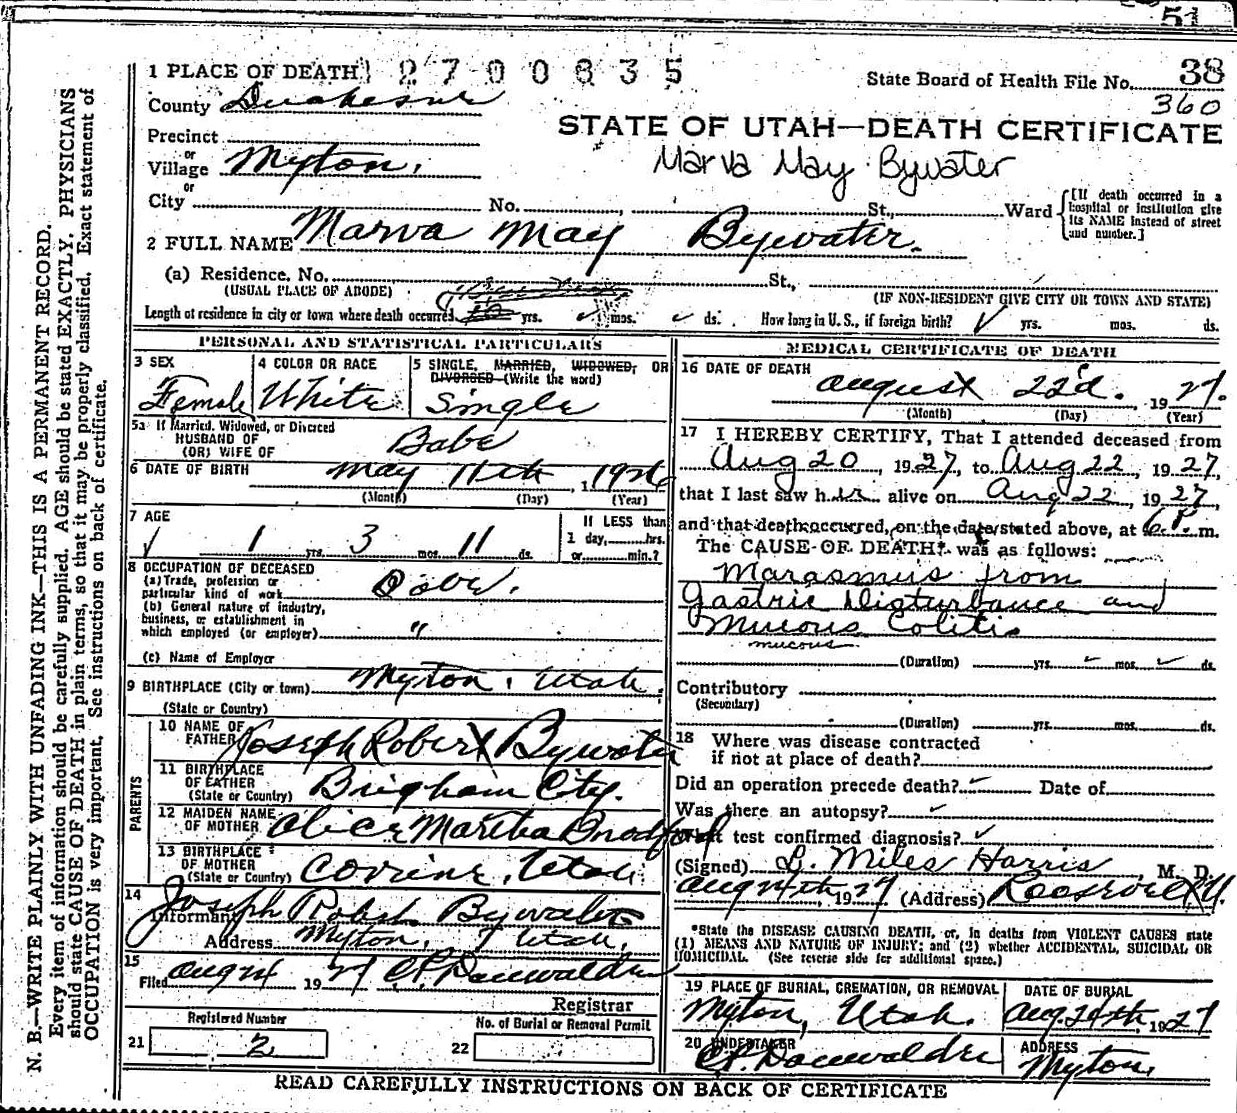 51
1 PLACE OF DEATH 12700635
State Board of Health File No. 38
360
County Duchesne
STATE OF UTAH—DEATH CERTIFICATE
Precinct
or
Village Myton.
Marva May Bywater
or
City No. St., Ward [If death occurred in a hospital or institution give its NAME instead of street and number.]
2 FULL NAME Marva May Bywater.
(a) Residence. No. St.,
(USUAL PLACE OF ABODE) (IF NON-RESIDENT GIVE CITY OR TOWN AND STATE)
Length of residence in city or town where death occurred yrs. mos. ds. How long in U. S., if foreign birth? yrs. mos. ds.
PERSONAL AND STATISTICAL PARTICULARS
3 SEX Female
4 COLOR OR RACE White
5 SINGLE, MARRIED, WIDOWED, OR DIVORCED (Write the word) Single
5a If Married, Widowed, or Divorced
HUSBAND OF
(OR) WIFE OF Babe
6 DATE OF BIRTH May 11th, 1 1926
(Month) (Day) (Year)
7 AGE 1 yrs. 3 mos. 11 ds.
If LESS than
1 day, hrs.
or min.?
8 OCCUPATION OF DECEASED
(a) Trade, profession or
particular kind of work Babe.
(b) General nature of industry,
business, or establishment in
which employed (or employer) "
(c) Name of Employer
9 BIRTHPLACE (City or town) Myton, Utah.
(State or Country)
PARENTS
10 NAME OF
FATHER Joseph Robert Bywater
11 BIRTHPLACE
OF FATHER
(State or Country) Brigham City.
12 MAIDEN NAME
OF MOTHER Alice Martha Bradford
13 BIRTHPLACE
OF MOTHER
(State or Country) Corrine, Utah
14
Informant Joseph Robert Bywater
Address Myton, Utah.
15
Filed Aug 24 1927 C.P. Dauwalder
Registrar
Registered Number
21 2
No. of Burial or Removal Permit
22
MEDICAL CERTIFICATE OF DEATH
16 DATE OF DEATH August 22d. , 19 27.
(Month) (Day) (Year)
17 I HEREBY CERTIFY, That I attended deceased from
Aug 20, 1927, to Aug 22, 1927,
that I last saw her alive on Aug 22, 1927,
and that death occurred, on the date stated above, at 6 P. m.
The CAUSE OF DEATH* was as follows:
Marasmus from
Gastric Disturbance and
Mucous Colitis
mucous
(Duration) yrs. mos. ds.
Contributory
(Secondary)
(Duration) yrs. mos. ds.
18 Where was disease contracted
if not at place of death?
Did an operation precede death? Date of
Was there an autopsy?
What test confirmed diagnosis?
(Signed) L. Miles Harris, M. D.
Aug 24th, 1927 (Address) Roosevelt U.
*State the DISEASE CAUSING DEATH, or, in deaths from VIOLENT CAUSES state
(1) MEANS AND NATURE OF INJURY; and (2) whether ACCIDENTAL, SUICIDAL OR
HOMICIDAL. (See reverse side for additional space.)
19 PLACE OF BURIAL, CREMATION, OR REMOVAL
Myton, Utah.
DATE OF BURIAL
Aug. 24th, 1927
20 UNDERTAKER
C.P. Dauwalder
ADDRESS
Myton.
READ CAREFULLY INSTRUCTIONS ON BACK OF CERTIFICATE
N. B.—WRITE PLAINLY WITH UNFADING INK—THIS IS A PERMANENT RECORD.
Every item of information should be carefully supplied. AGE should be stated EXACTLY. PHYSICIANS
should state CAUSE OF DEATH in plain terms, so that it may be properly classified. Exact statement of
OCCUPATION is very important. See instructions on back of certificate.